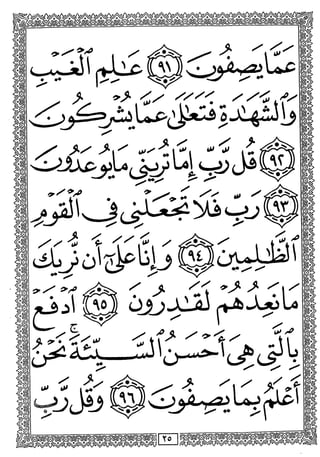 عَمَّا يَصِفُونَ ﴿٩١﴾ عَٰلِمِ ٱلْغَيْبِ
وَٱلشَّهَٰدَةِ فَتَعَٰلَىٰ عَمَّا يُشْرِكُونَ
﴿٩٢﴾ قُل رَّبِّ إِمَّا تُرِيَنِّى مَا يُوعَدُونَ
﴿٩٣﴾ رَبِّ فَلَا تَجْعَلْنِى فِى ٱلْقَوْمِ
ٱلظَّٰلِمِينَ ﴿٩٤﴾ وَإِنَّا عَلَىٰٓ أَن نُّرِيَكَ
مَا نَعِدُهُمْ لَقَٰدِرُونَ ﴿٩٥﴾ ٱدْفَعْ
بِٱلَّتِى هِىَ أَحْسَنُ ٱلسَّيِّئَةَ ۚ نَحْنُ
أَعْلَمُ بِمَا يَصِفُونَ ﴿٩٦﴾ وَقُل رَّبِّ
٢٥